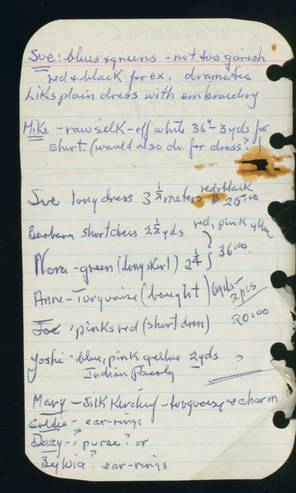 Sue: blues & greens - not too garish
red & black for ex. dramatic
Likes plain dress with embroidery
Mike - raw silk - off white 36" - 3 yds for
shirt (would also do for dress?)
Sue long dress 3 1/2 meters red & black $ 25.00
Barbara short dress 2 1/2 yds red, pink yellow
Nora - green (long skirt) 2 1/4 36.00
Anne - Turquoise (bought) 6 yds - 2 pcs
Joe, pinks red (short dress) 20.00
Yoshi - blue, pink yellow 2 yds ?
Indian
Mary - Silk Kerchief - turquoise & charm
Goldie - ear-rings
Dozy - ? purse? or
Sylvia? ear-rings